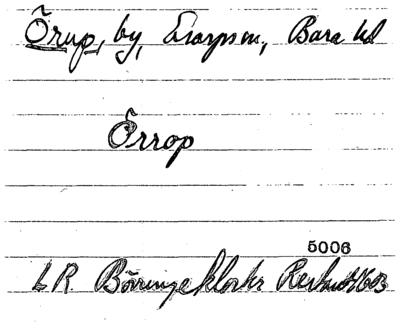 Örup, by, Esarps sn, Bara hd
Örrop
5006
LR. Börringeklosters Restant 1603